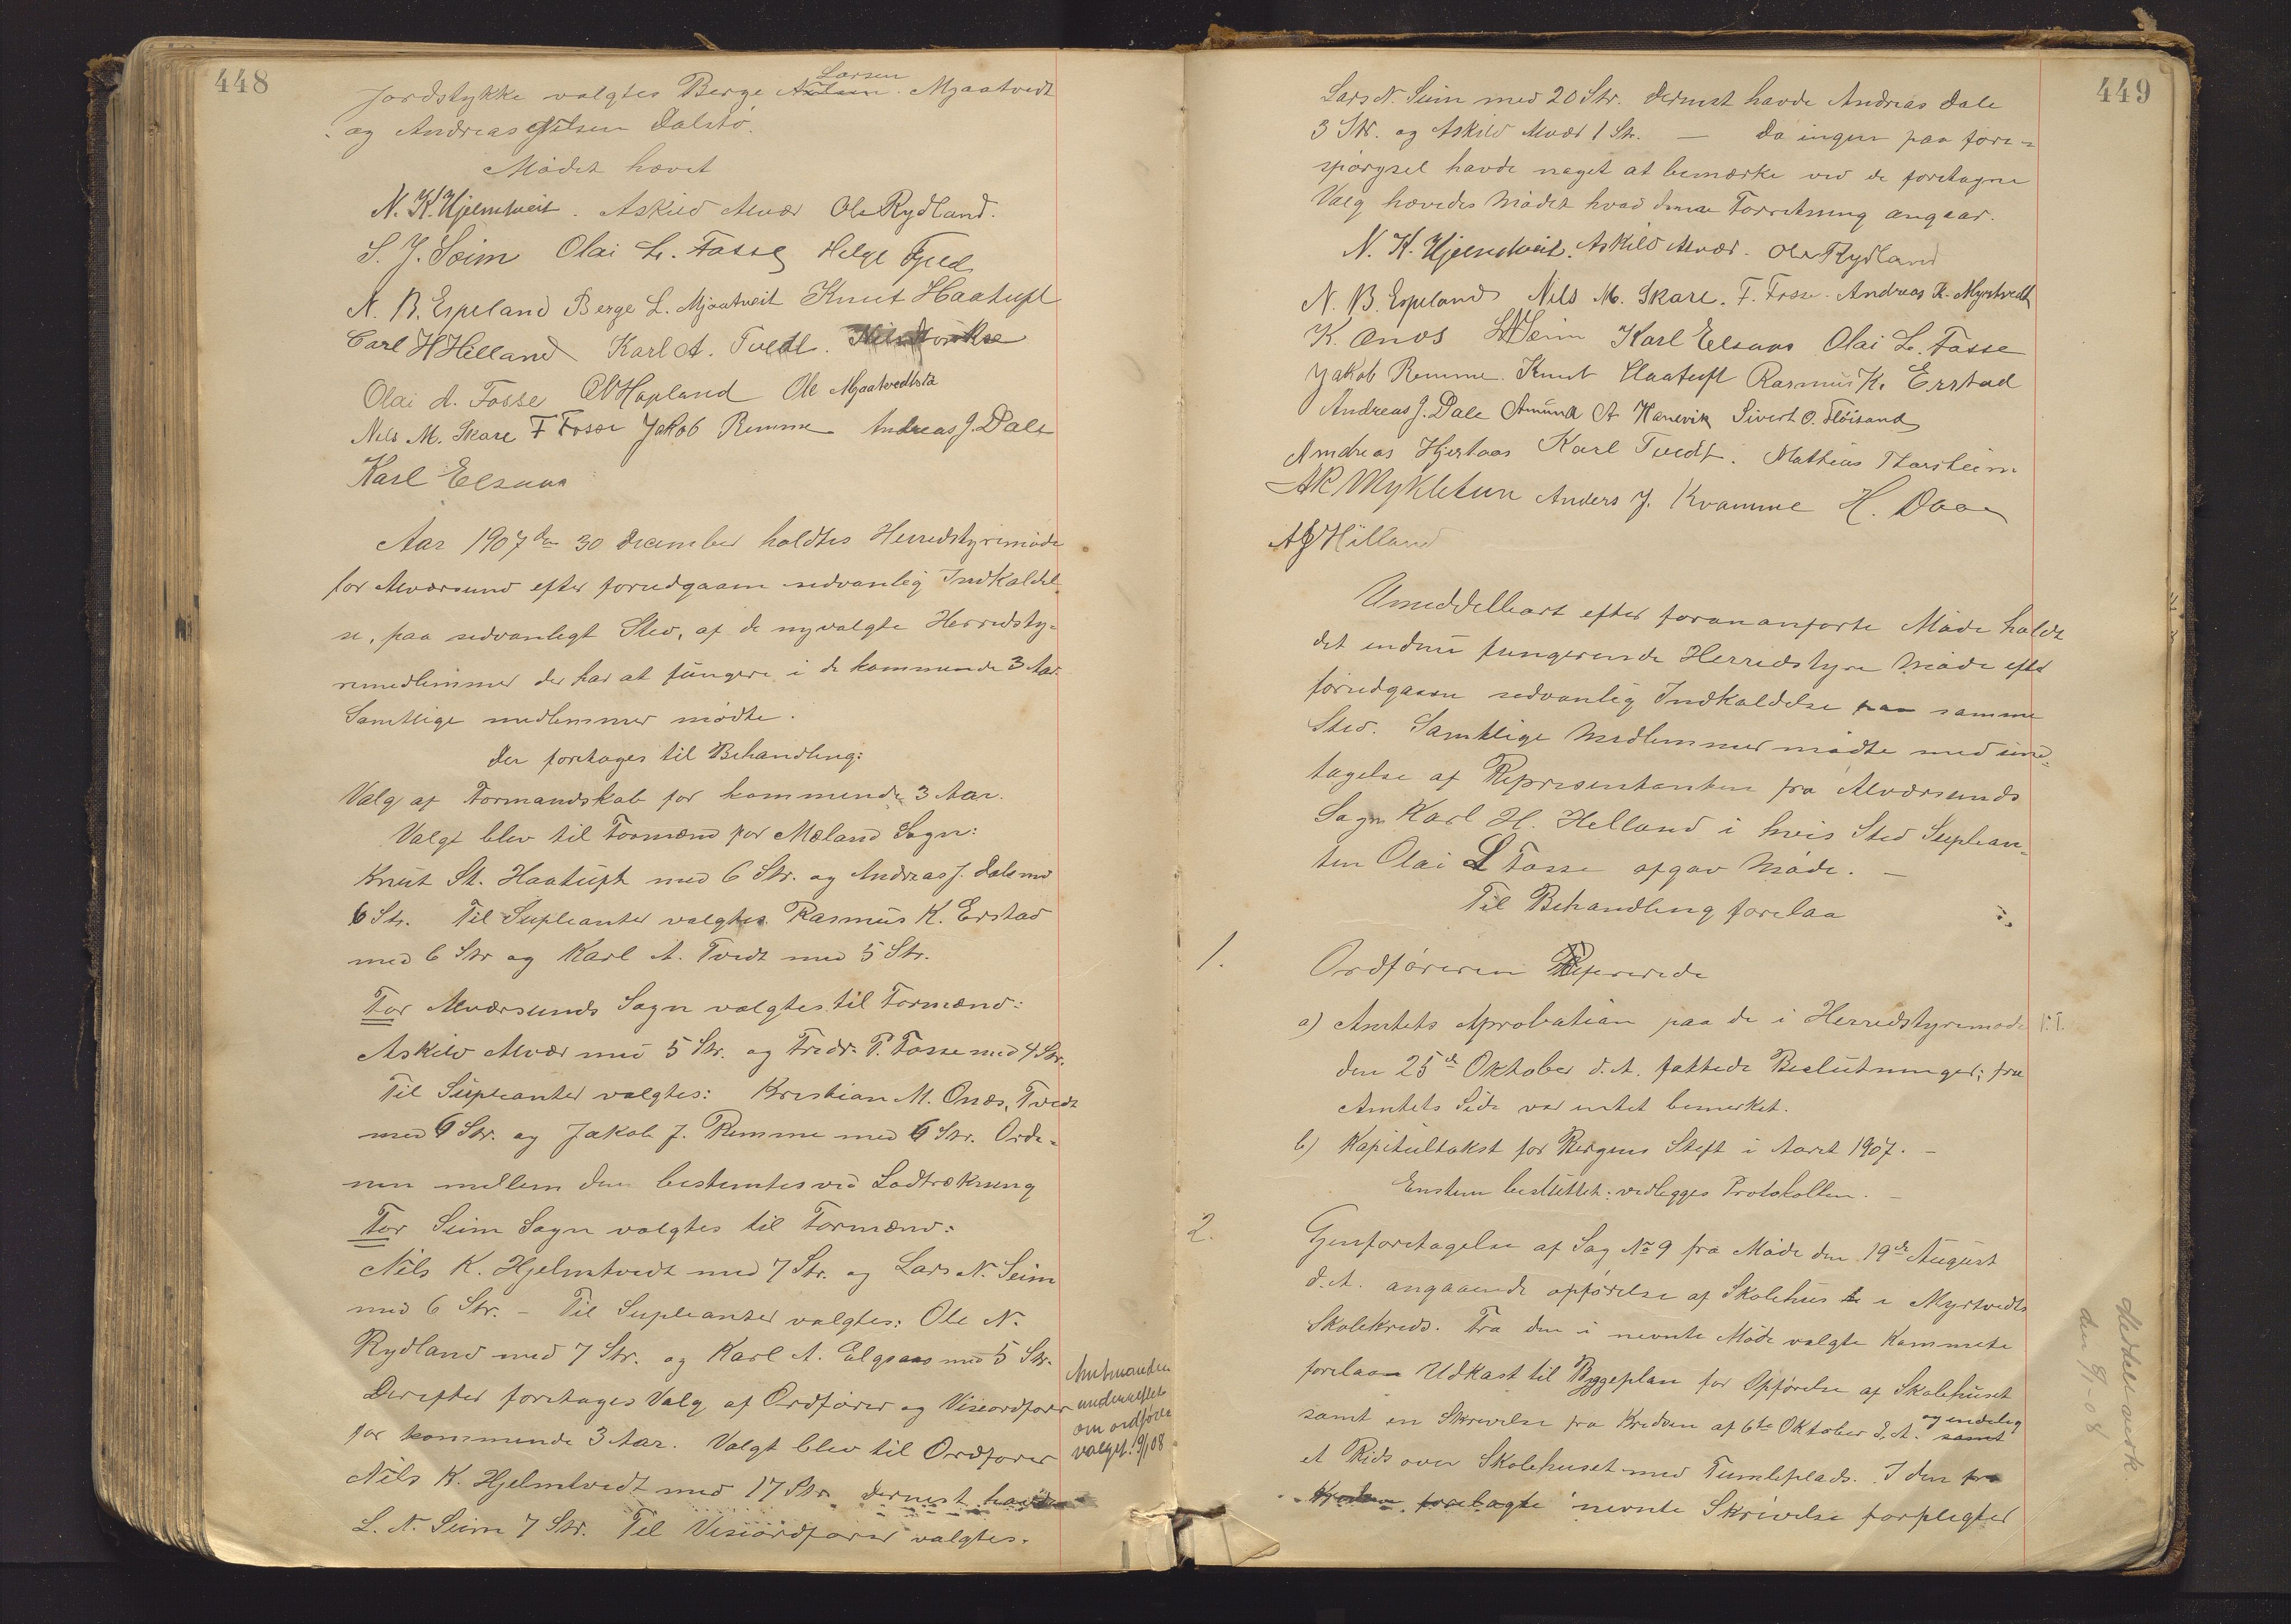 448
Larsen
Jordstykke valgtes Berge Nilsen. Mjaatvedt
og Andreas Nilsen Dalstø.
Mødet hævet
N. K. Hjelmtveit. Askild Alvær Ole Rydland.
S. J. Seim Olai L. Fosse Helge Fjeld
N. B. Espeland Berge L. Mjaatveit Knut Haatuft
Carl H Helland Karl A. Tvedt.
Olai A. Fosse Hopland Ole Mjaatvedtstø
Nils M. Skare F Fosse Jakob Remme Andreas J. Dale
Karl Elsaas
Aar 1907 den 30 December holdtes Herredstyremøde
for Alværsund efter forudgaaen sedvanlig Indkaldel
se, paa sedvanligt Sted, af de nyvalgte Herredsty-
remedlemmer der har at fungere i de kommende 3 Aar.
Samtlige medlemmer mødte.
Der foretages til Behandling:
Valg af Formandskab for kommende 3 Aar.
Valgt blev til Formænd for Mæland Sogn:
Knut St. Haatuft med 6 Str. og Andreas J. Dale med
6 Str. Til Supleanter valgtes Rasmus K. Erstad
med 6 Str og Karl A. Tvedt med 5 Str.
For Alværsunds Sogn valgtes til Formænd:
Askild Alvær med 5 Str. og Fredr. P. Fosse med 4 Str.
Til Supleanter valgtes: Kristian M. Onæs, Tvedt
med 6 Str. og Jakob J. Remme med 6 Str. Orde-
nen mellem dem bestemtes ved Lodtrækning
For Seim Sogn valgtes til Formænd:
Nils K. Hjelmtvedt med 7 Str. og Lars N. Seim
med 6 Str. - Til Supleanter valgtes: Ole N.
Rydland med 7 Str. og Karl A. Elgsaas med 5 Str.
Derefter foretages Valg af Ordfører og Viseordfører
for kommende 3 Aar. Valgt blev til Ordfører
Nils K. Hjelmtvedt med 17 Str. Dernest havde
L. N. Seim 7 Str. Til Viseordfører valgtes.
Amtmanden
underrettet
om ordfører
valget. 9/1 08
449
Lars N. Seim med 20 Str. dernest havde Andreas Dale
3 Str. og Askild Alvær 1 Str. — Da ingen paa fore-
spørgsel havde noget at bemærke ved de foretagne
Valg hævedes Mødet hvad denne Forretning angaar.
N. K. Hjelmtveit. Askild Alvær. Ole Rydland
N. B. Espeland Nils M. Skare. F. Fosse. Andreas K. Myrtvedt
K. Onæs LNSeim Karl Elsaas Olai L. Fosse
Jakob Remme. Knut Haatuft Rasmus K. Erstad
Andreas J. Dale Amund A Hanevik Sivert O. Fløisand
Andreas Hjertaas Karl Tvedt. Mathias Thorsheim
AR Mykletun Anders J. Kvamme H. Daae
Helland
Umiddelbart efter forananførte Møde holdt
det endnu fungerende Herredstyre Møde efter
forudgaaen sedvanlig Indkaldelse paa samme
Sted. Samtlige Medlemmer mødte med und-
tagelse af Representanten fra Alværsunds
Sogn Karl H. Helland i hvis Sted Suplean-
ten Olai L Fosse afgav Møde. —
Til Behandling forelaa
1. Ordføreren Refererede
a) Amtets Aprobation paa de i Herredstyremøde
den 25de Oktober d. A. fattede Beslutninger; fra
Amtets Side var intet bemerket.
b) Kapitultakst for Bergens Stift i Aaret 1907. -
Enstem besluttet: vedlegges Protokollen. -
2. Gjenforetagelse af Sag No 9 fra Møde den 19de August
d. A. angaaende opførelse af Skolehus i Myrtvedts
Skolekreds. Fra den i nevnte Møde valgte Kommete
forelaa Udkast til Byggeplan for Opførelse af Skolehuset
og endelig
samt en Skrivelse fra Kredsen af 6te Oktober d. A. samt
et Rids over Skolehuset med Tumleplads. I den fra
Kredsen forelagte nevnte Skrivelse forpligter
Meddelt værk.
den 8/1-08